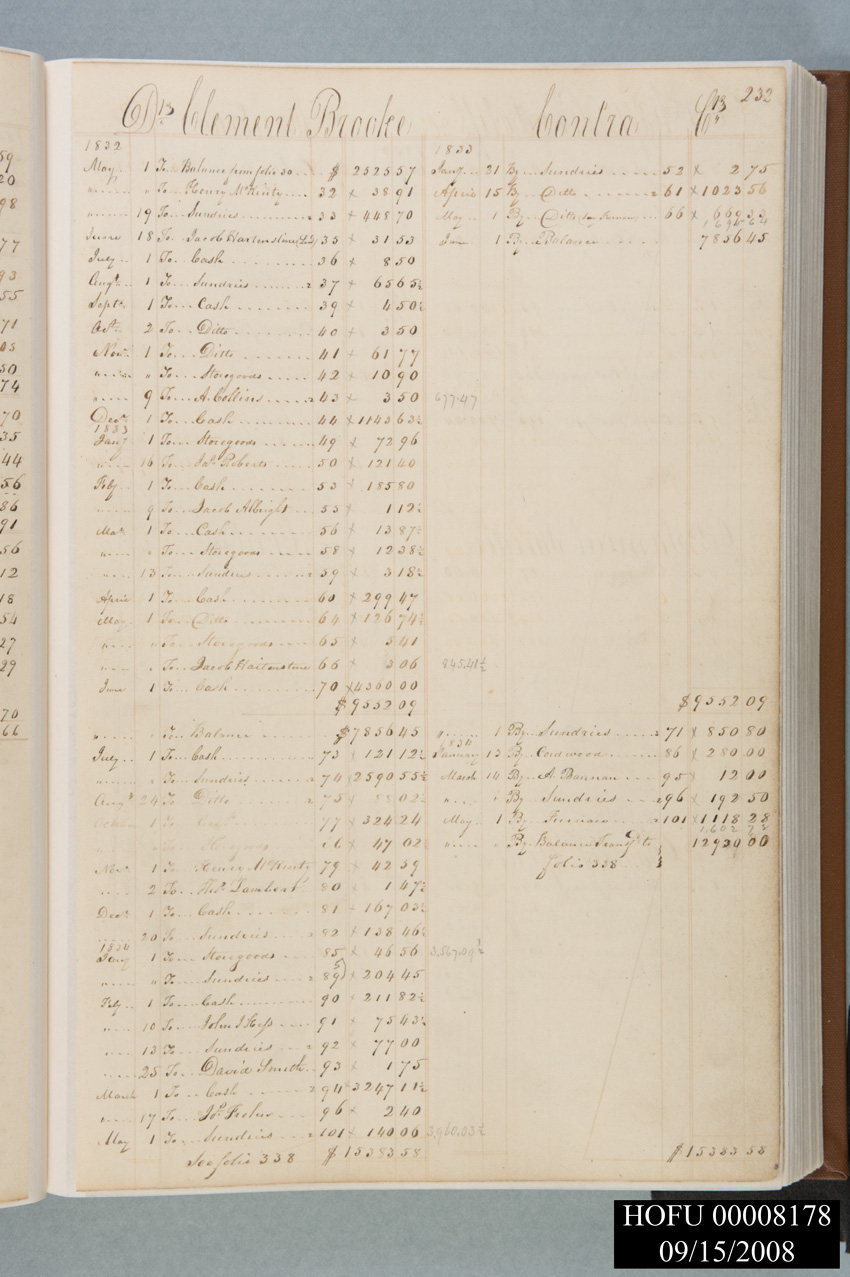 232
Dr. Clement Brooke Contra Cr.
1832
May 1 To Balance from folio 30 $ 2525 57
" " To Henry McKinty 32 x 38 91
" 19 To Sundries 33 x 448 70
June 18 To Jacob Hartenstine 35 x 31 53
July 1 To Cash 36 x 8 50
Augt. 1 To Sundries 37 x 65 65½
Septr. 1 To Cash 39 x 4 50½
Oct. 2 To Ditto 40 x 3 50
Novr. 1 To Ditto 41 x 61 77
" " To Storegoods 42 x 10 90
" 9 To A. Collins 43 x 3 50
Decr. 1 To Cash 44 x 1143 63½
1833
Jany 1 To Storegoods 49 x 72 96
" 16 To Jas. Roberts 50 x 121 40
Feby 1 To Cash 53 x 185 80
" 9 To Jacob Albright 55 x 1 12½
Mar. 1 To Cash 56 x 13 87½
" " To Storegoods 58 x 12 38½
" 13 To Sundries 59 x 3 18½
April 1 To Cash 60 x 299 47
May 1 To Ditto 64 x 126 74½
" " To Storegoods 65 x 5 41
" " To Jacob Hartenstine 66 x 3 06
June 1 To Cash 70 x 4360 00
$ 9552 09
" " To Balance $ 7856 45
July 1 To Cash 73 x 121 12½
" " To Sundries 74 x 2590 55½
Augt 24 To Ditto 75 x 88 02½
October 1 To 77 x 324 24
" To Storegoods 47 02½
Novr. 1 To Henry McKinty 79 x 42 59
" 2 To Lambert 80 x 1 47½
Decr. 1 To Cash 81 x 167 03½
" 20 To Sundries 82 x 138 46½
1834
Jany 1 To Storegoods 85 x 46 56
" " To Sundries 89 x 204 45
Feby 1 To Cash 90 x 211 82½
" 10 To John J Hess 91 x 75 43½
" 13 To Sundries 92 x 77 00
" 25 To David Smith 93 x 1 75
March 1 To Cash 94 x 3247 11½
" 17 To Jos. Fisher 96 x 2 40
May 1 To Sundries 101 x 140 06
See folio 338 $ 15383 58
1833
Jany. 21 By Sundries 52 x 2 75
April 15 By Ditto 61 x 1023 56
May 1 By Ditto 66 x 669 33
June 1 By Balance 7856 45
677.47
845.41½
$ 9552 09
" 1 By Sundries 71 x 850 80
1834
January 13 By Cordwood 86 x 280 00
March 14 By A. Bannan 95 x 12 00
" " By Sundries 96 x 192 50
May 1 By Furnace 101 x 1118 28
" " By Balance Transfd. to 12920 00
folio 338
3,567.09½
3,960.03½
$ 15383 58
HOFU 00008178
09/15/2008